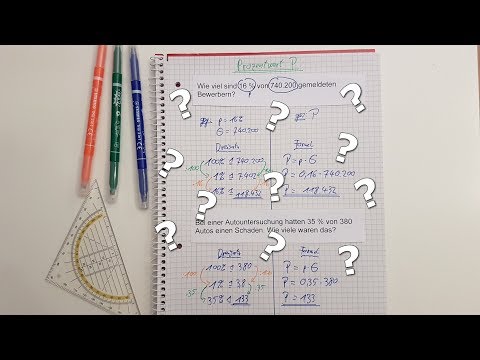 Prozentwert P
Wie viel sind 16 % von 740.200 gemeldeten
Bewerbern?
p = 16%
G = 740 200
P
Dreisatz
Formel
100% ≙ 740.200
P = p · G
1% ≙ 7.402
P = 0,16 · 740.200
16% ≙ 118.432
P = 118.432
Bei einer Autountersuchung hatten 35 % von 380
Autos einen Schaden. Wie viele waren das?
Dreisatz
Formel
100% ≙ 380
P = p · G
1% ≙ 3,8
P = 0,35 · 380
35% ≙ 133
P = 133